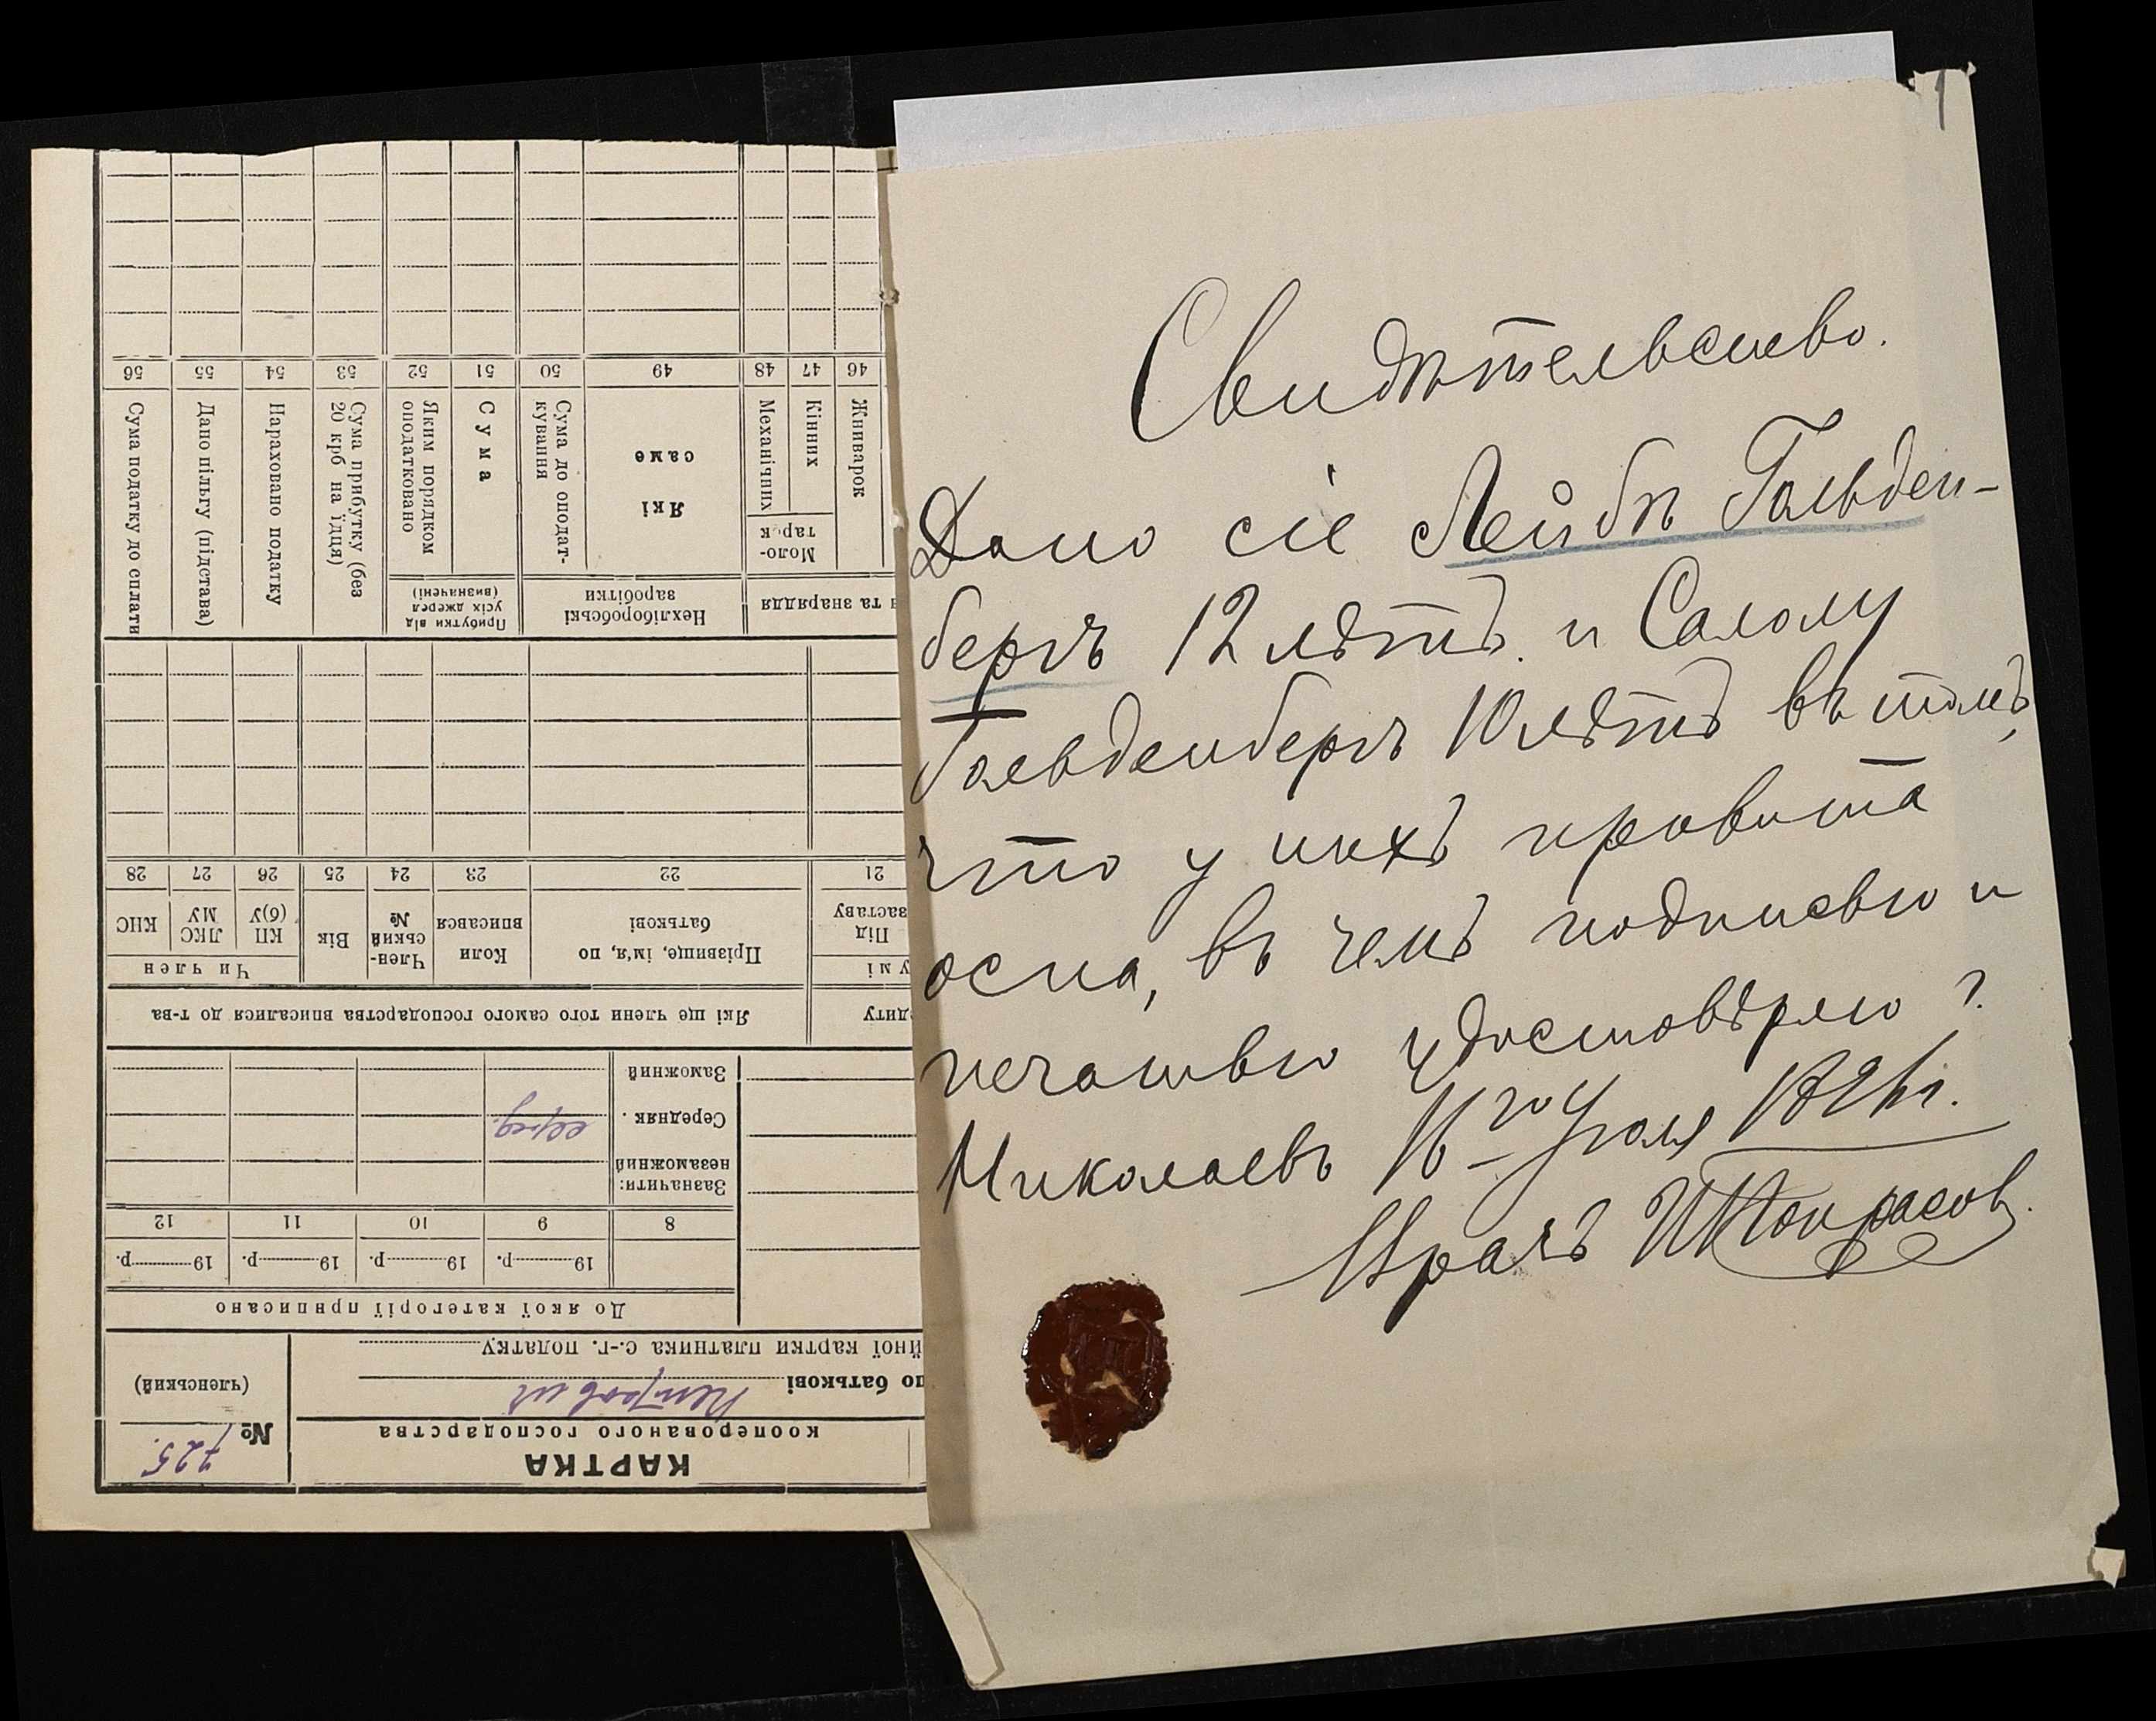 1
Свидѣтельство.
Дано сіе Лейбѣ Гольден-
бергъ 12 лѣтъ и Салому
Гольденбергъ 10 лѣтъ въ томъ,
что у нихъ привита
оспа, въ чемъ подписью и
печатью удостовѣряю г.
Николаевъ 16го Іюля
Врачъ
КАРТКА
кооперованого господарства
№ 725.
(членський)
по батькові Петрович
йної картки платника с.-г. податку
До якої категорії приписано
19 р. 19 р. 19 р. 19 р.
8 9 10 11 12
Зазначити:
незаможний
Середняк . серед.
Заможний
едиту Які ще члени того самого господарства вписалися до т-ва
у мі Чи член
Під заставу
Прізвище, ім'я, по батькові
Коли вписався
Член-ський №
Вік
КП (б)У
ЛКС МУ
КНС
21 22 23 24 25 26 27 28
та знаряддя
Нехліборобські заробітки
Прибутки від усіх джерел (визначені)
Жниварок
Моло-тарок
Кінних
Механічних
Які саме
Сума до оподат-кування
Сума
Яким порядком оподатковано
Сума прибутку (без 20 крб на їдця)
Нараховано податку
Дано пільгу (підстава)
Сума податку до сплати
46 47 48 49 50 51 52 53 54 55 56